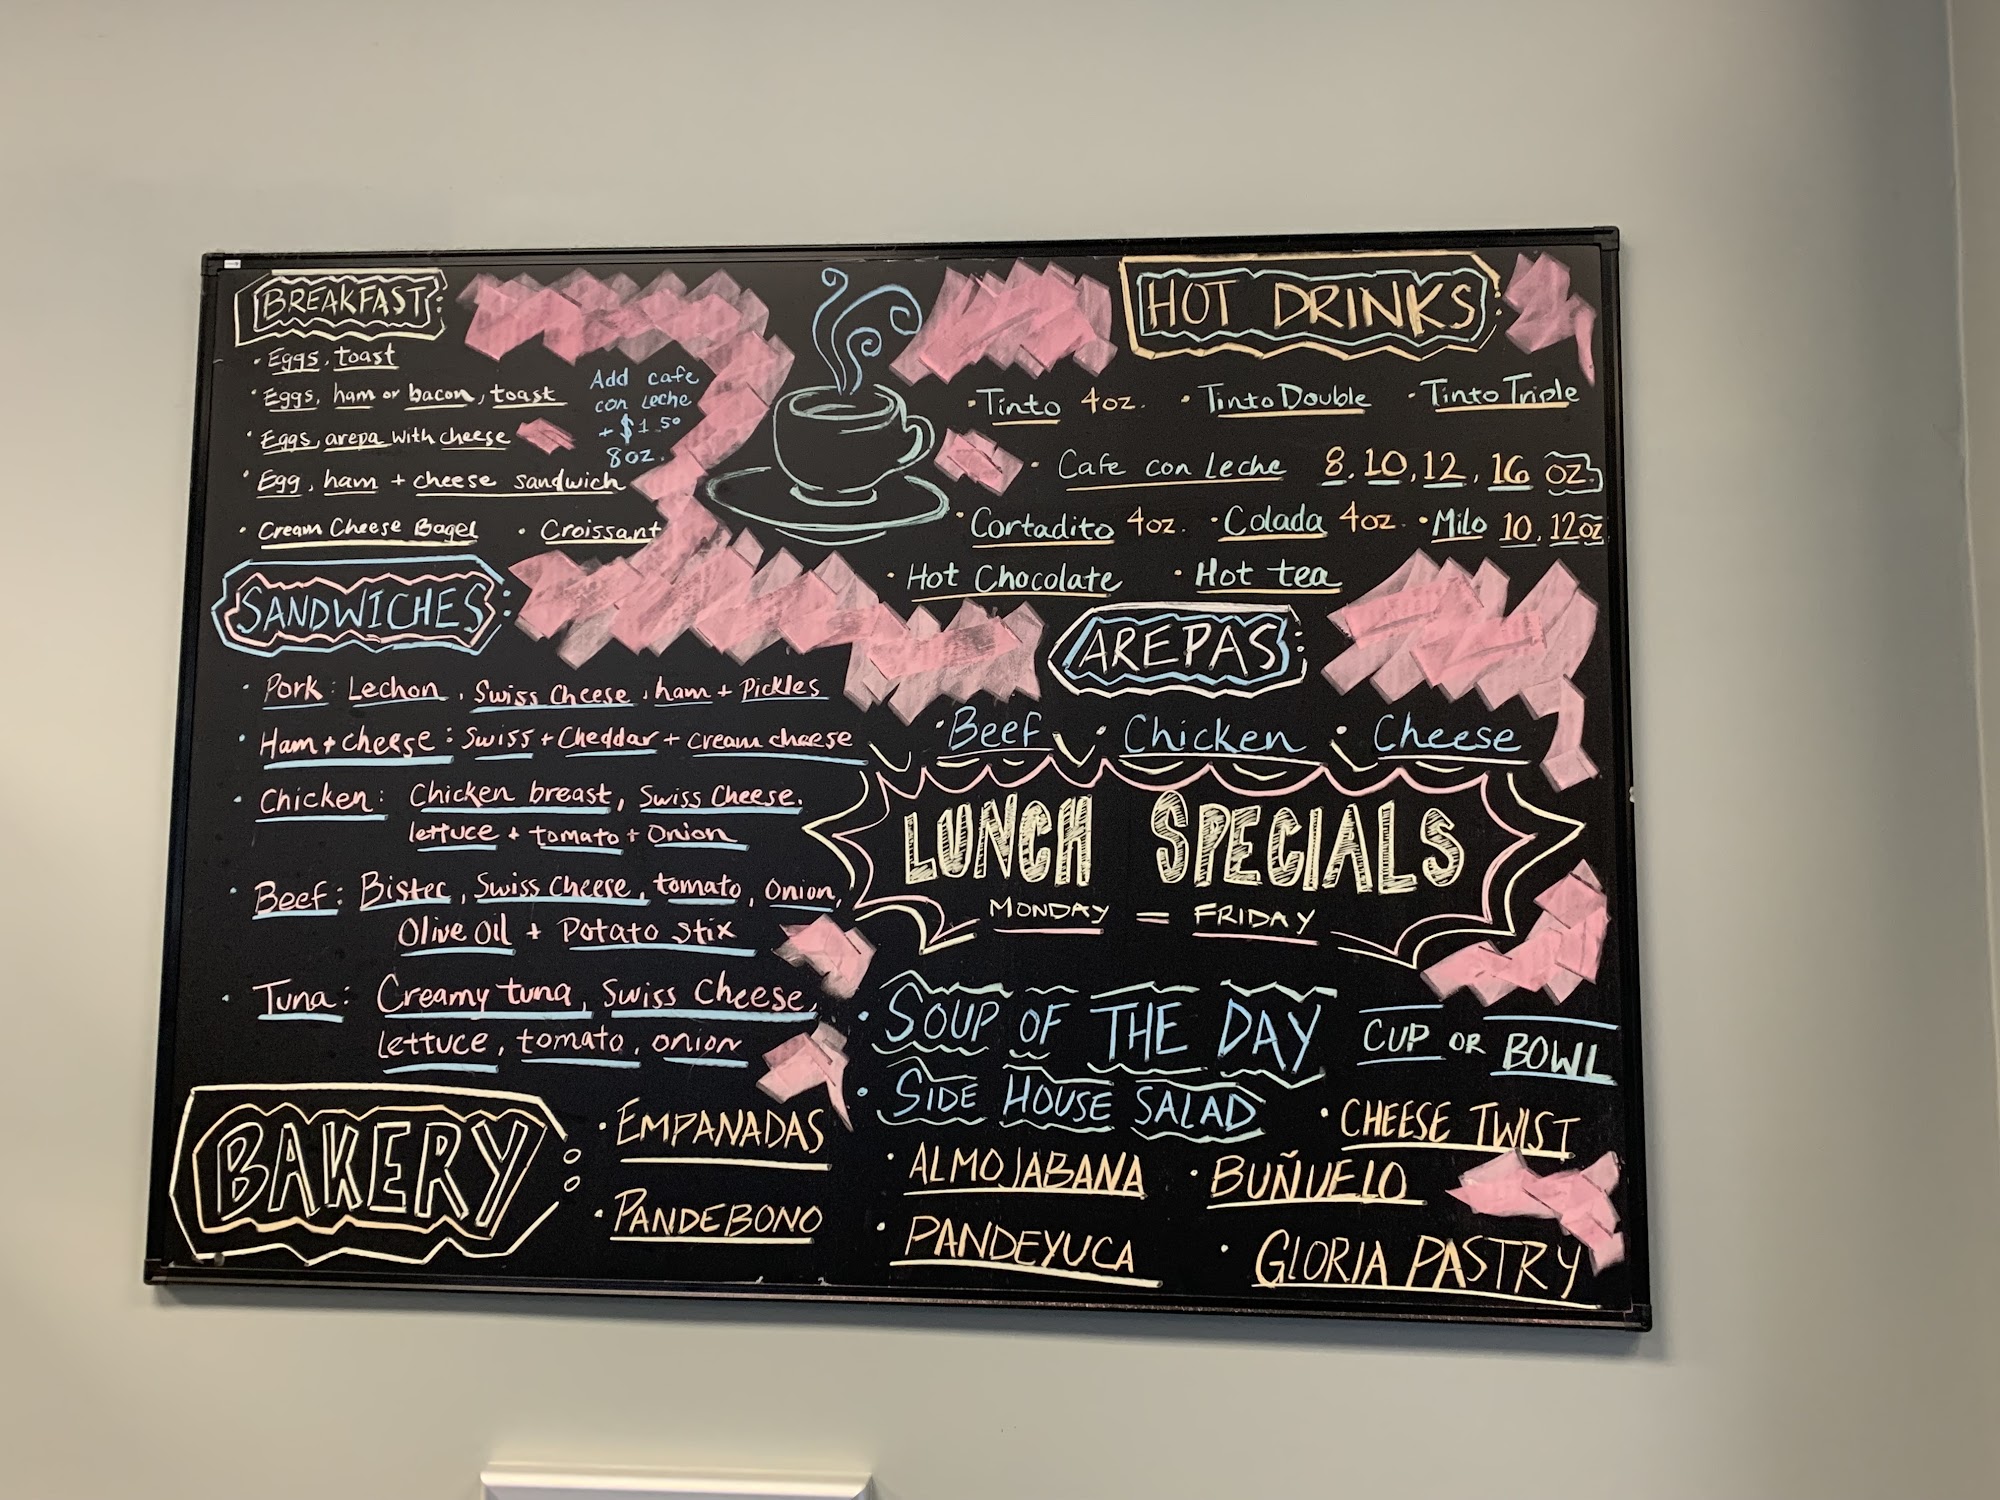 BREAKFAST:
• Eggs, toast
• Eggs, ham or bacon, toast
• Eggs, arepa with cheese
• Egg, ham + cheese sandwich
• Cream Cheese Bagel • Croissant
Add cafe
con leche
+ $1.50
8oz.
HOT DRINKS:
• Tinto 4oz. • Tinto Double • Tinto Triple
• Cafe con Leche 8, 10, 12, 16 oz.
• Cortadito 4oz. • Colada 4oz. • Milo 10, 12oz
• Hot Chocolate • Hot tea
SANDWICHES:
• Pork: Lechon, Swiss Cheese, ham + Pickles
• Ham + cheese: Swiss + Cheddar + cream cheese
• Chicken: Chicken breast, Swiss Cheese,
lettuce + tomato + Onion
• Beef: Bistec, Swiss Cheese, tomato, Onion,
Olive Oil + Potato Stix
• Tuna: Creamy tuna, Swiss Cheese,
lettuce, tomato, onion
AREPAS:
• Beef • Chicken • Cheese
LUNCH SPECIALS
MONDAY = FRIDAY
• SOUP OF THE DAY CUP OR BOWL
• SIDE HOUSE SALAD
BAKERY:
• EMPANADAS
• PANDEBONO
• ALMOJABANA
• PANDEYUCA
• CHEESE TWIST
• BUÑUELO
• GLORIA PASTRY